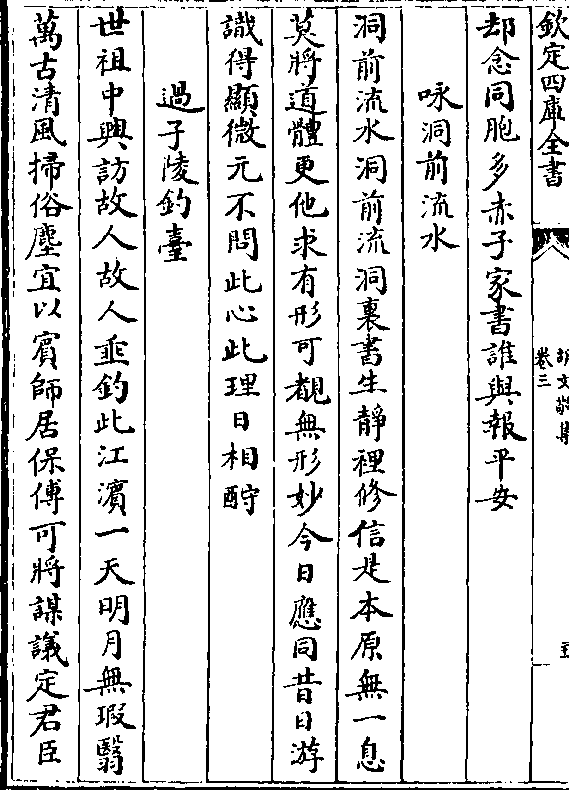 欽定四庫全書
胡文敬集
卷三
却念同胞多赤子家書誰與報平安
咏洞前流水
洞前流水洞前流洞裏書生靜裡修信是本原無一息
莫將道體更他求有形可觀無形妙今日應同昔日游
識得顯微元不問此心此理日相酧
過子陵釣臺
世祖中興訪故人故人垂釣此江濱一天明月無瑕翳
萬古清風掃俗塵宜以賓師居保傅可將謀議定君臣